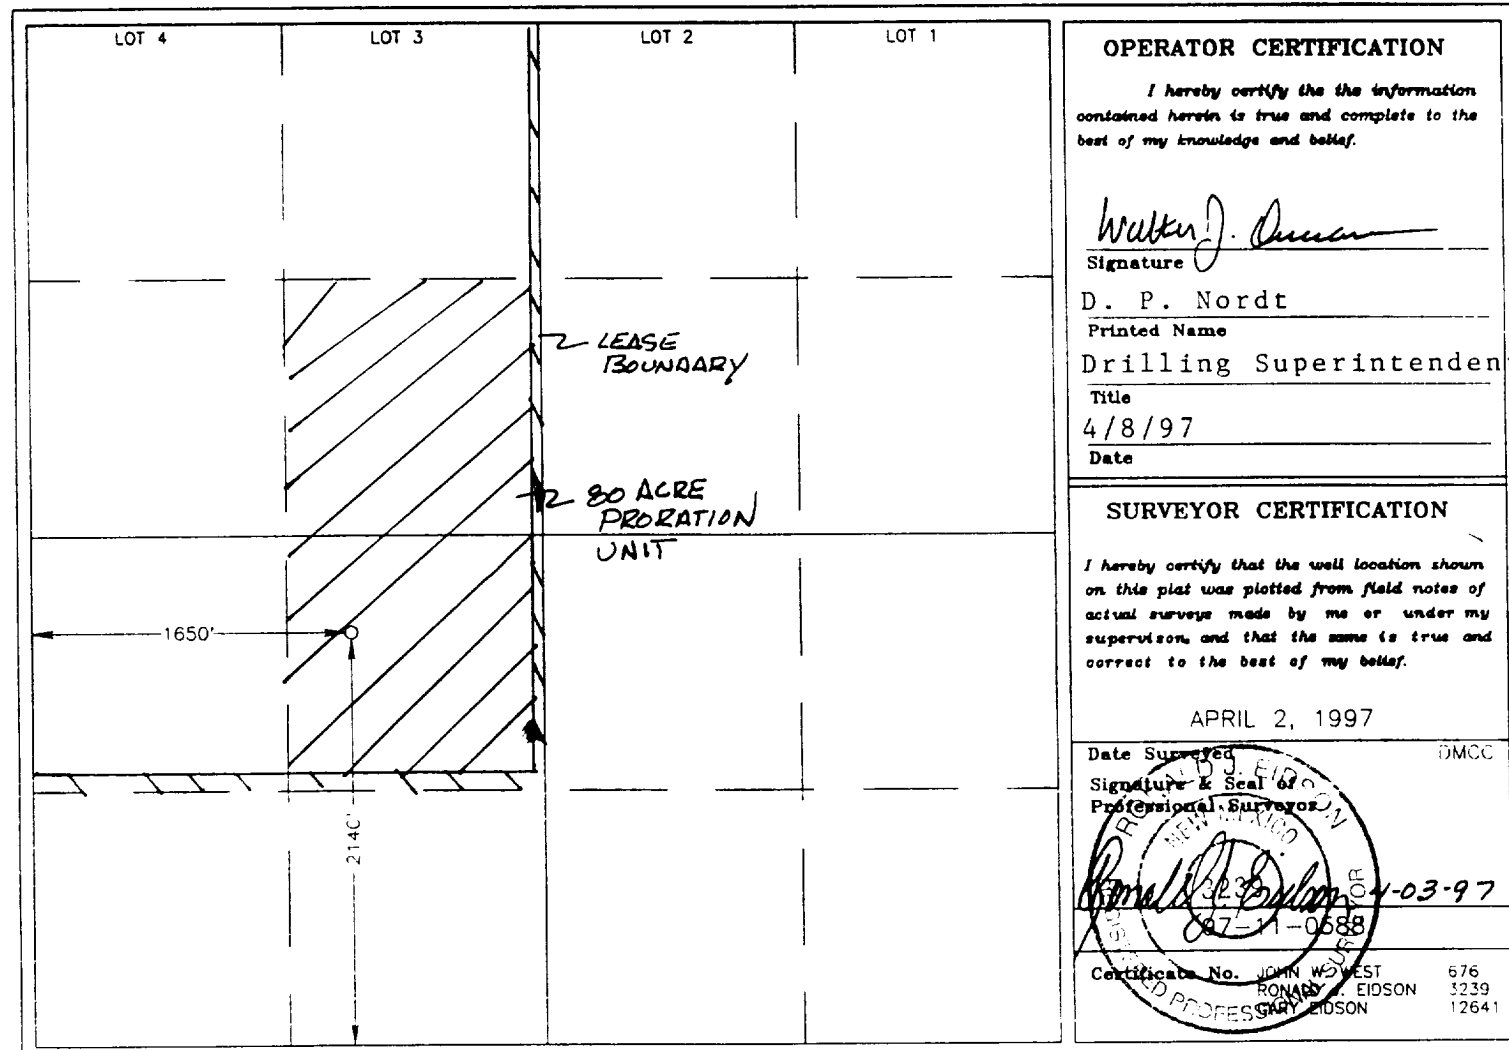 LOT 4
LOT 3
LOT 2
LOT 1
LEASE
BOUNDARY
80 ACRE
PRORATION
UNIT
1650'
2140'
OPERATOR CERTIFICATION
I hereby certify the the information
contained herein is true and complete to the
best of my knowledge and belief.
Signature
D. P. Nordt
Printed Name
Drilling Superintenden
Title
4/8/97
Date
SURVEYOR CERTIFICATION
I hereby certify that the well location shown
on this plat was plotted from field notes of
actual surveys made by me or under my
supervison, and that the same is true and
correct to the best of my belief.
APRIL 2, 1997
Date Surveyed DMCC
Signature & Seal of
Professional Surveyor
RONALD J. EIDSON
NEW MEXICO
3239
REGISTERED PROFESSIONAL SURVEYOR
Ronald J. Eidson 4-03-97
97-11-0588
Certificate No. JOHN W. WEST 676
RONALD J. EIDSON 3239
GARY EIDSON 12641